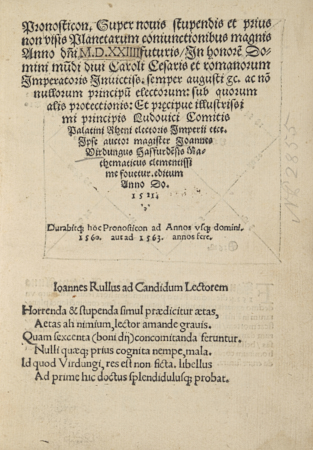 Pronosticon, Super nouis stupendis et prius
non visis Planetarum coniunctionibus magnis
Anno dñi M.D.XXIIII futuris/ In honorẽ Do-
mini mũdi diui Caroli Cesaris et romanorum
Imperatoris Inuictiss. semper augusti ꝛc. ac nõ
nullorum principũ electorum: sub quorum
alis protectionis: Et precipue illustrissi
mi principis Ludouici Comitis
Palatini Rheni electoris Imperii etce.
Ipse auctor magister Ioannes
Virdungus Hassfurdẽsis Ma-
thematicus clementissi
me fouetur. editum
Anno Do.
1521.
Durabitq; hoc Pronosticon ad Annos vsq; domini.
1560. aut ad 1563. annos fere.
Ioannes Rullus ad Candidum Lectorem
Horrenda & stupenda simul prædicitur ætas,
Aetas ah nimium, lector amande grauis.
Quam sexcenta (boni dij) concomitanda feruntur.
Nulli quæq; prius cognita nempe, mala.
Id quod Virdungi, res est non ficta. libellus
Ad prime hic doctus splendidulusq; probat.